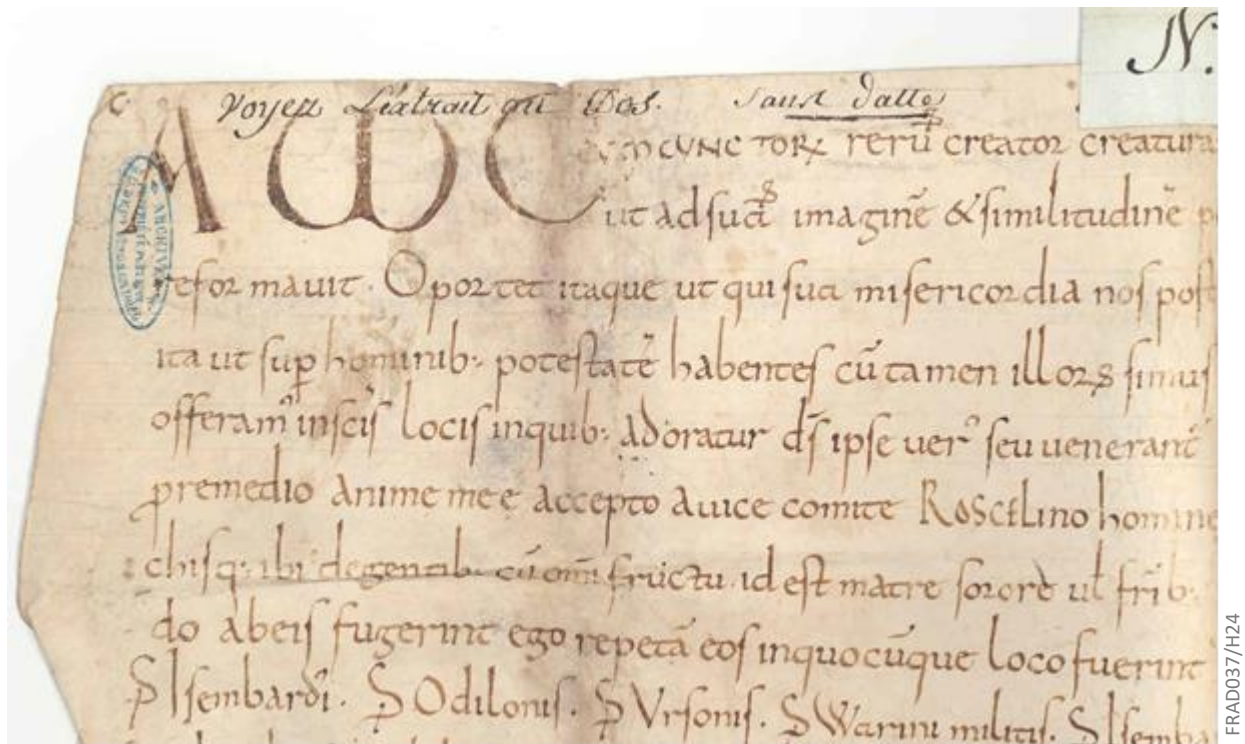 N.
C. Voyez L'extrait au Dos. Sans datte
A ω CUM CVNCTORꝝ rerū creator creatura
ut ad suā imaginē & similitudinē p
reformauit. Oportet itaque ut qui sua misericordia nos post
ita ut sup̱ hominib; potestatē habentes cū tamen illorꝝ simus
offeramꝰ in sc̄is locis in quib; adoratur d̄s ipse uerꝰ seu uenerant̄
ꝓ remedio anime mee accepto a uice comite Roscelino homine
chisq; ibi degentib; cū om̄i fructu id est matre sorore ul̄ fr̄ib;
do ab eis fugerint ego repetā eos in quocūque loco fuerint
S Isembardi. S Odilonis. S Vrsonis. S Warini militis. S Isemba
FRAD037/H24